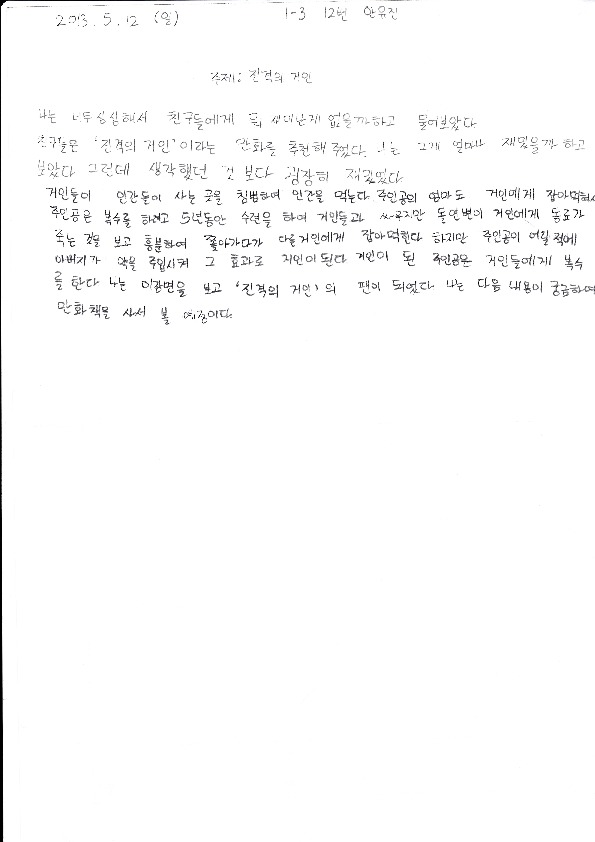 2013. 5. 12 (일) 1-3 12번 안유진
주제: 진격의 거인
나는 너무 심심해서 친구들에게 뭐 재미난게 없을까하고 물어보았다
친구들은 '진격의 거인'이라는 만화를 추천해 주었다. 나는 그게 얼마나 재밌을까 하고
보았다 그런데 생각했던 것 보다 굉장히 재밌었다
거인들이 인간들이 사는 곳을 침범하여 인간을 먹는다 주인공의 엄마도 거인에게 잡아먹혀서
주인공은 복수를 하려고 5년동안 수련을 하여 거인들과 싸우지만 돌연변이 거인에게 동료가
죽는 것을 보고 흥분하여 쫓아가다가 다른거인에게 잡아먹힌다 하지만 주인공이 어릴적에
아버지가 약을 주입시켜 그 효과로 거인이된다 거인이 된 주인공은 거인들에게 복수
를 한다 나는 이장면을 보고 '진격의 거인'의 팬이 되었다. 나는 다음 내용이 궁금하여
만화책을 사서 볼 예정이다.